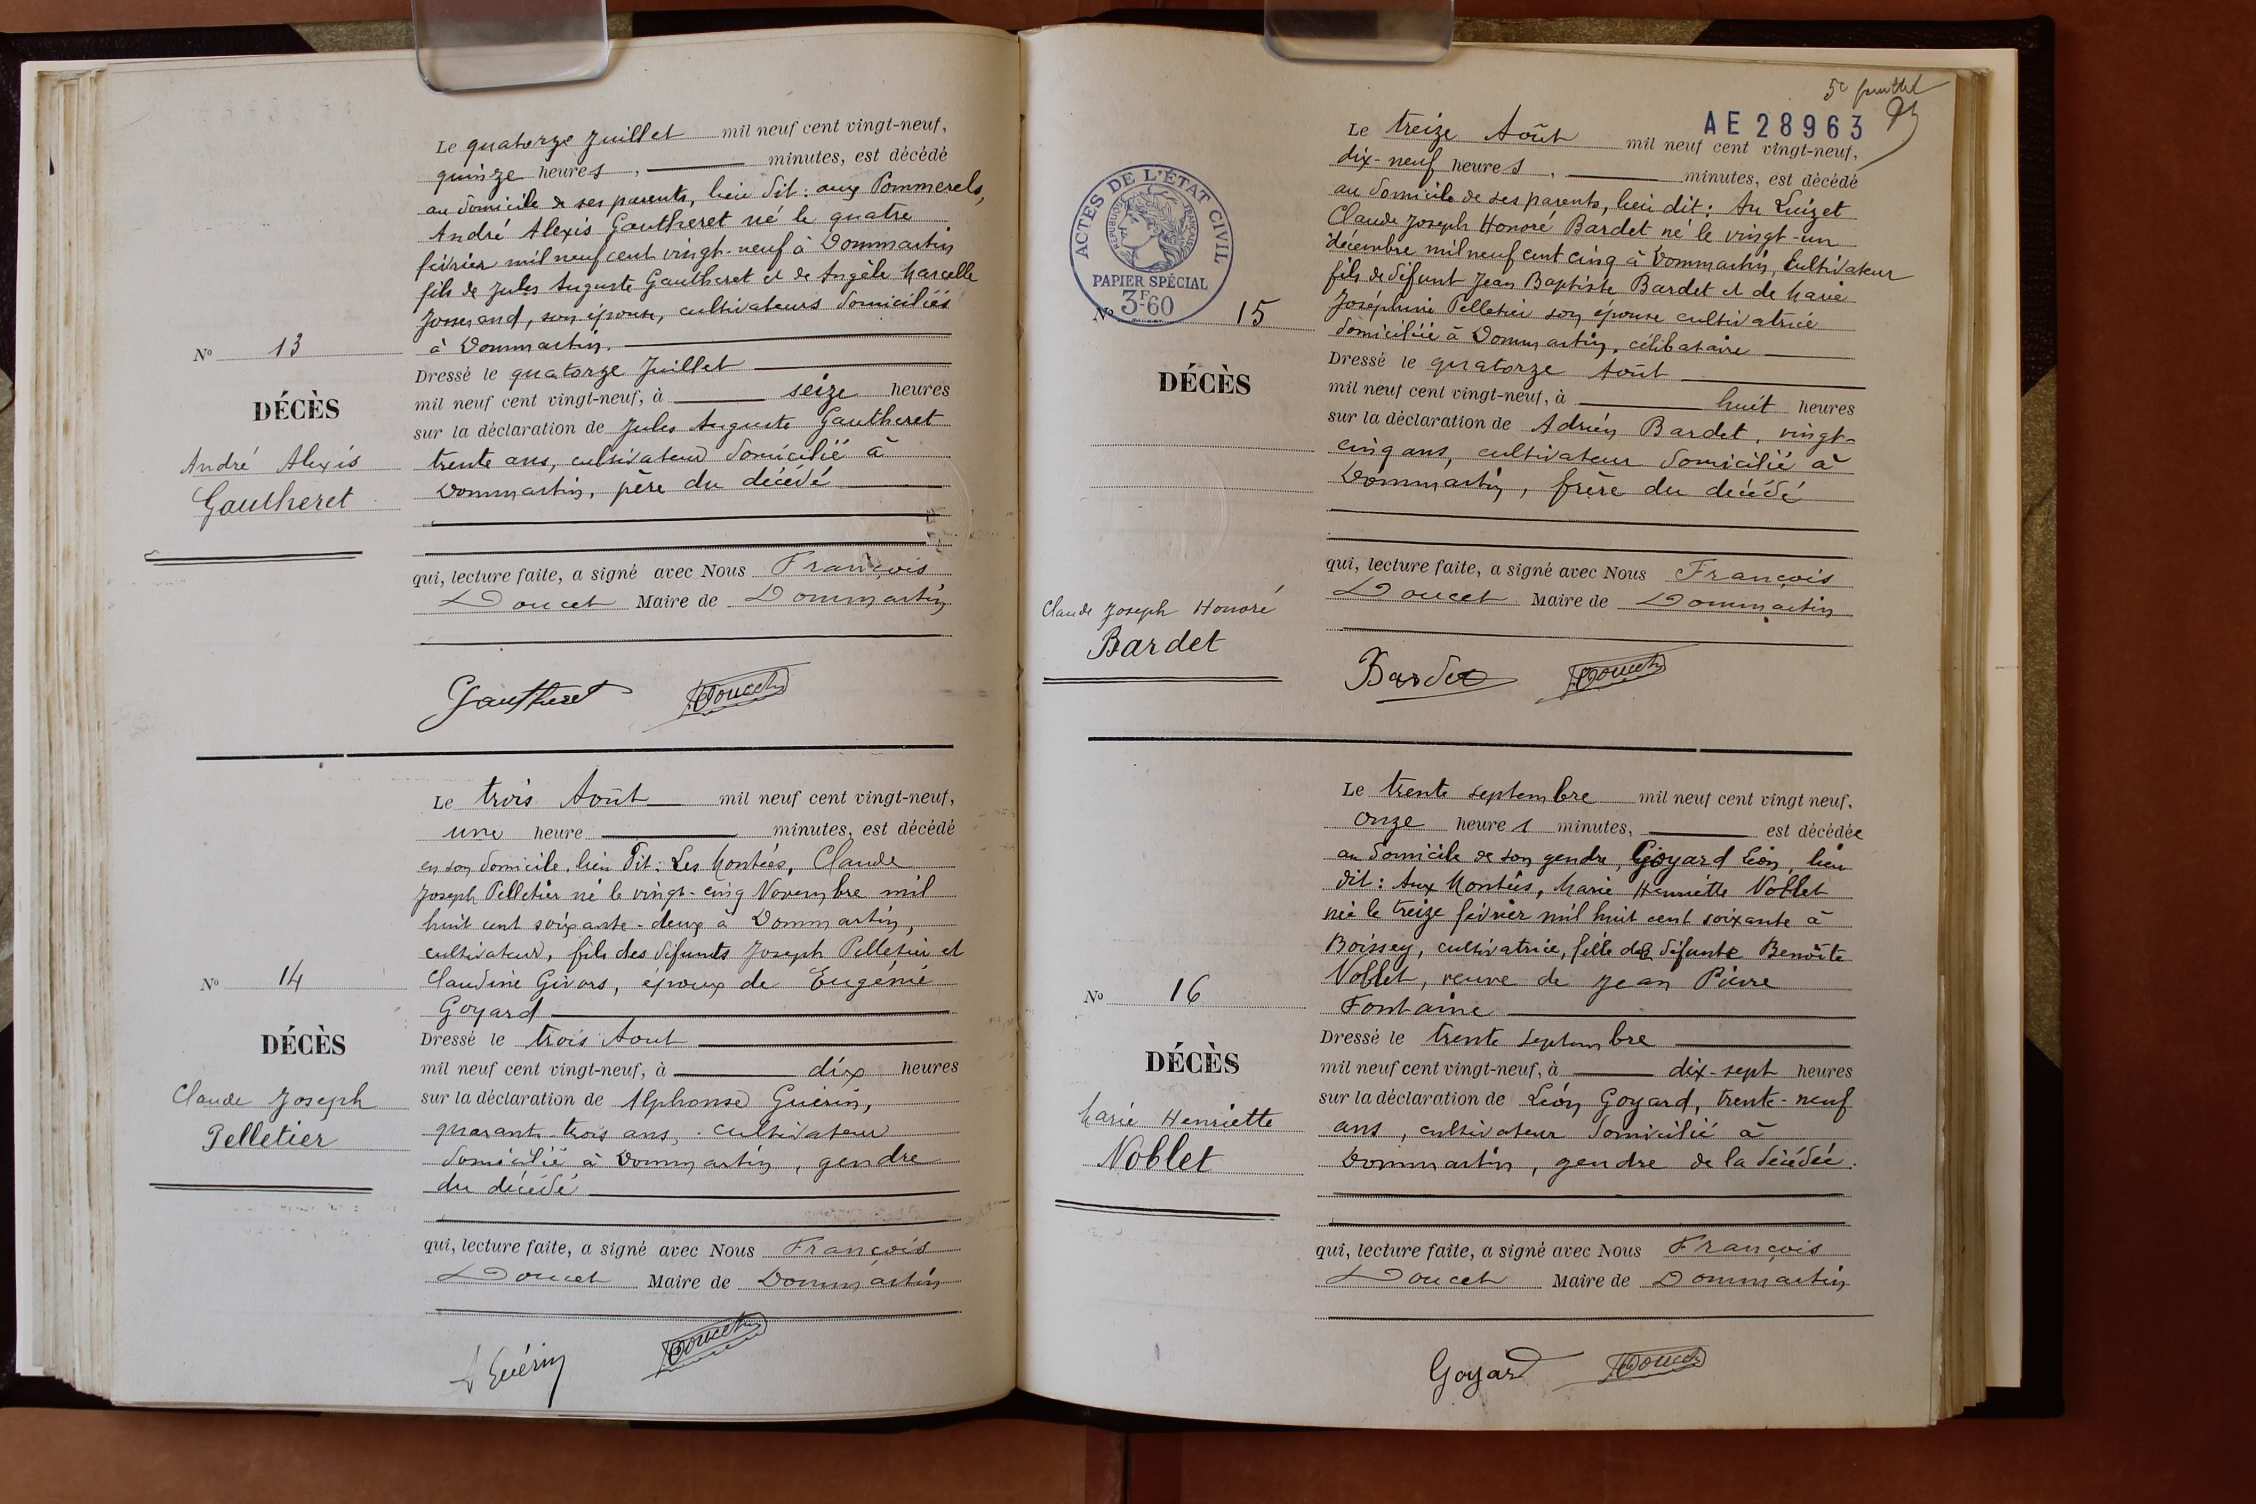 Le quatorze Juillet mil neuf cent vingt-neuf,
quinze heures, minutes, est décédé
au domicile de ses parents, lieu dit : aux Pommerels,
André Alexis Gautheret né le quatre
février mil neuf cent vingt-neuf à Dommartin
fils de Jules Auguste Gautheret et de Angèle Marcelle
Josserand, son épouse, cultivateurs domiciliés
à Dommartin.
Dressé le quatorze Juillet
mil neuf cent vingt-neuf, à seize heures
sur la déclaration de Jules Auguste Gautheret
trente ans, cultivateur domicilié à
Dommartin, père du décédé
qui, lecture faite, a signé avec Nous François
Doucet Maire de Dommartin
No 13
DÉCÈS
André Alexis
Gautheret
Gautheret Doucet
Le trois Août mil neuf cent vingt-neuf,
une heure minutes, est décédé
en son domicile, lieu dit : Les Montées, Claude
Joseph Pelletier né le vingt-cinq Novembre mil
huit cent soixante-deux à Dommartin,
cultivateur, fils des défunts Joseph Pelletier et
Claudine Givors, époux de Eugénie
Goyard
Dressé le trois Aout
mil neuf cent vingt-neuf, à dix heures
sur la déclaration de Alphonse Guérin,
quarante-trois ans, cultivateur
domicilié à Dommartin, gendre
du décédé
qui, lecture faite, a signé avec Nous François
Doucet Maire de Dommartin
No 14
DÉCÈS
Claude Joseph
Pelletier
A Guérin Doucet
5e feuillet
AE 28963
ACTES DE L'ÉTAT CIVIL
RÉPUBLIQUE FRANÇAISE
PAPIER SPÉCIAL
3F60
Le treize Août mil neuf cent vingt-neuf,
dix-neuf heures, minutes, est décédé
au domicile de ses parents, lieu dit : Au Luizet
Claude Joseph Honoré Bardet né le vingt-un
décembre mil neuf cent cinq à Dommartin, cultivateur
fils de défunt Jean Baptiste Bardet et de Marie
Joséphine Pelletier son épouse cultivatrice
domiciliée à Dommartin, célibataire
Dressé le quatorze Août
mil neuf cent vingt-neuf, à huit heures
sur la déclaration de Adrien Bardet, vingt-
cinq ans, cultivateur domicilié à
Dommartin, frère du décédé
qui, lecture faite, a signé avec Nous François
Doucet Maire de Dommartin
No 15
DÉCÈS
Claude Joseph Honoré
Bardet
Bardet Doucet
Le trente septembre mil neuf cent vingt neuf,
onze heures minutes, est décédée
au domicile de son gendre, Goyard Léon, lieu
dit : Aux Montées, Marie Henriette Noblet
née le treize février mil huit cent soixante à
Boissey, cultivatrice, fille de défunte Benoîte
Noblet, veuve de Jean Pierre
Fontaine
Dressé le trente septembre
mil neuf cent vingt-neuf, à dix-sept heures
sur la déclaration de Léon Goyard, trente-neuf
ans, cultivateur domicilié à
Dommartin, gendre de la décédée.
qui, lecture faite, a signé avec Nous François
Doucet Maire de Dommartin
No 16
DÉCÈS
Marie Henriette
Noblet
Goyard Doucet